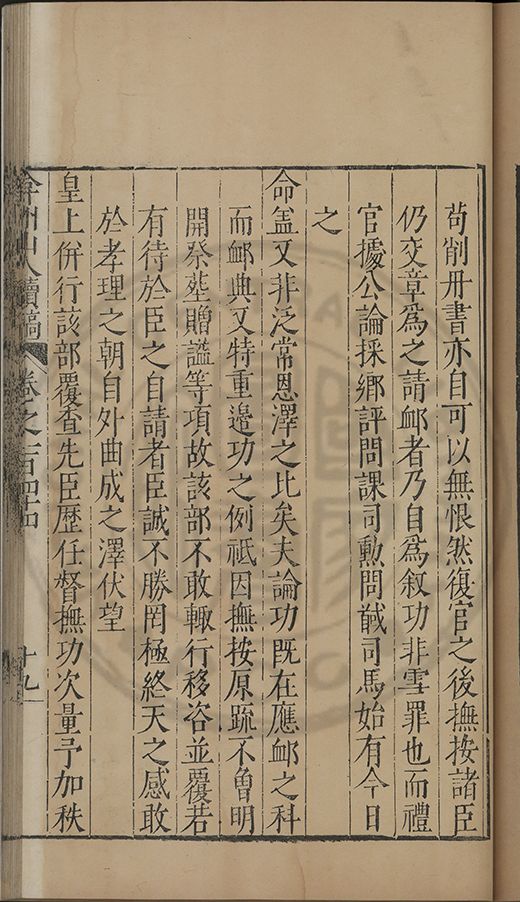 苟削册書亦自可以無恨然復官之後撫按諸臣
仍交章爲之請衈者乃自爲叙功非雪罪也而禮
官據公論採鄉評問課司勲問馘司馬始有今日
之
命葢又非泛常恩澤之比矣夫論功既在應衈之科
而衈典又特重邉功之例祗因撫按原疏不曾明
開祭塟贈謚等項故該部不敢輙行移咨並覆若
有待於臣之自請者臣誠不勝罔極終天之感敢
於孝理之朝自外曲成之澤伏望
皇上併行該部覆查先臣歴任督撫功次量予加秩
弇州山人續稿 卷之一百四十四 十九